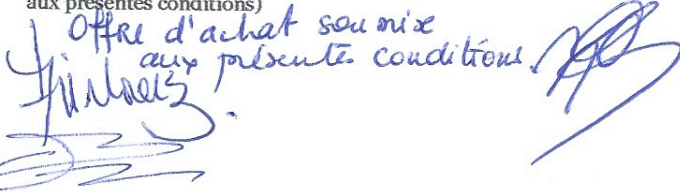 aux présentes conditions)
Offre d'achat soumise
aux présentes conditions.